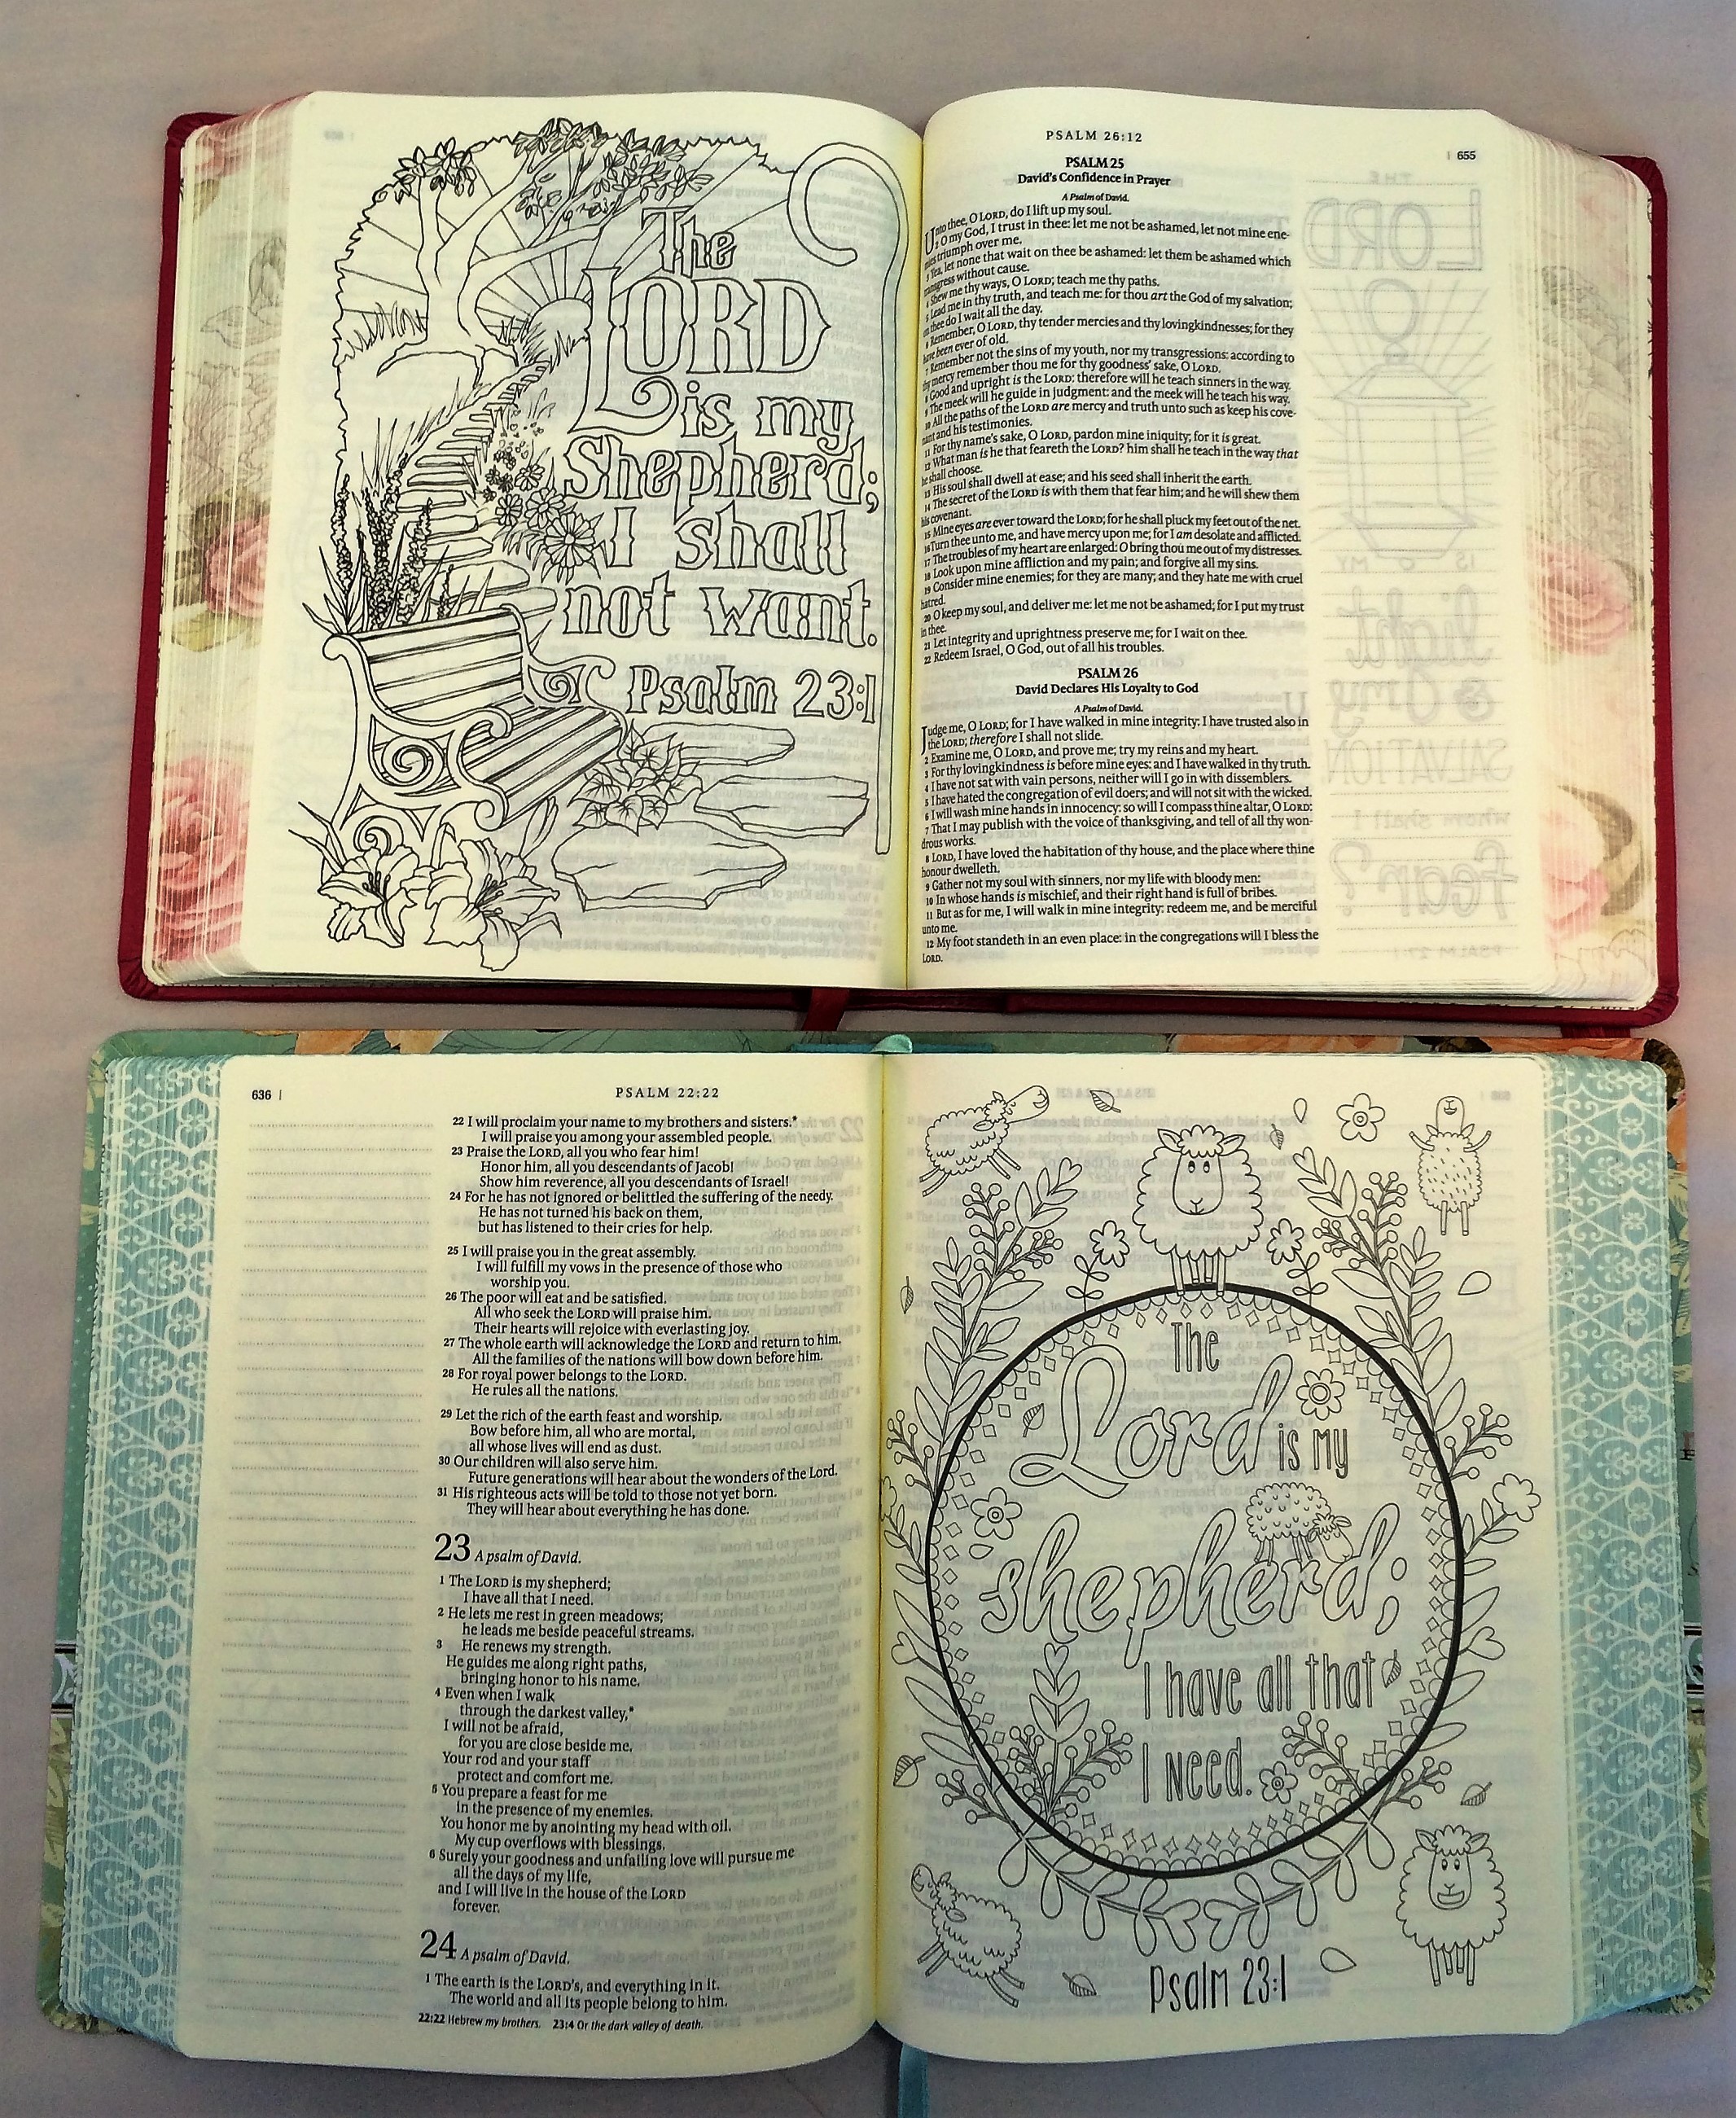 The
LORD
is my
Shepherd;
I shall
not want.
Psalm 23:1
PSALM 26:12
| 655
PSALM 25
David's Confidence in Prayer
A Psalm of David.
Unto thee, O LORD, do I lift up my soul.
2 O my God, I trust in thee: let me not be ashamed, let not mine ene-
mies triumph over me.
3 Yea, let none that wait on thee be ashamed: let them be ashamed which
transgress without cause.
4 Shew me thy ways, O LORD; teach me thy paths.
5 Lead me in thy truth, and teach me: for thou art the God of my salvation;
on thee do I wait all the day.
6 Remember, O LORD, thy tender mercies and thy lovingkindnesses; for they
have been ever of old.
7 Remember not the sins of my youth, nor my transgressions: according to
thy mercy remember thou me for thy goodness' sake, O LORD.
8 Good and upright is the LORD: therefore will he teach sinners in the way.
9 The meek will he guide in judgment: and the meek will he teach his way.
10 All the paths of the LORD are mercy and truth unto such as keep his cove-
nant and his testimonies.
11 For thy name's sake, O LORD, pardon mine iniquity; for it is great.
12 What man is he that feareth the LORD? him shall he teach in the way that
he shall choose.
13 His soul shall dwell at ease; and his seed shall inherit the earth.
14 The secret of the LORD is with them that fear him; and he will shew them
his covenant.
15 Mine eyes are ever toward the LORD; for he shall pluck my feet out of the net.
16 Turn thee unto me, and have mercy upon me; for I am desolate and afflicted.
17 The troubles of my heart are enlarged: O bring thou me out of my distresses.
18 Look upon mine affliction and my pain; and forgive all my sins.
19 Consider mine enemies; for they are many; and they hate me with cruel
hatred.
20 O keep my soul, and deliver me: let me not be ashamed; for I put my trust
in thee.
21 Let integrity and uprightness preserve me; for I wait on thee.
22 Redeem Israel, O God, out of all his troubles.
PSALM 26
David Declares His Loyalty to God
A Psalm of David.
Judge me, O LORD; for I have walked in mine integrity: I have trusted also in
the LORD; therefore I shall not slide.
2 Examine me, O LORD, and prove me; try my reins and my heart.
3 For thy lovingkindness is before mine eyes: and I have walked in thy truth.
4 I have not sat with vain persons, neither will I go in with dissemblers.
5 I have hated the congregation of evil doers; and will not sit with the wicked.
6 I will wash mine hands in innocency: so will I compass thine altar, O LORD:
7 That I may publish with the voice of thanksgiving, and tell of all thy won-
drous works.
8 LORD, I have loved the habitation of thy house, and the place where thine
honour dwelleth.
9 Gather not my soul with sinners, nor my life with bloody men:
10 In whose hands is mischief, and their right hand is full of bribes.
11 But as for me, I will walk in mine integrity: redeem me, and be merciful
unto me.
12 My foot standeth in an even place: in the congregations will I bless the
LORD.
636 |
PSALM 22:22
22 I will proclaim your name to my brothers and sisters.*
I will praise you among your assembled people.
23 Praise the LORD, all you who fear him!
Honor him, all you descendants of Jacob!
Show him reverence, all you descendants of Israel!
24 For he has not ignored or belittled the suffering of the needy.
He has not turned his back on them,
but has listened to their cries for help.
25 I will praise you in the great assembly.
I will fulfill my vows in the presence of those who
worship you.
26 The poor will eat and be satisfied.
All who seek the LORD will praise him.
Their hearts will rejoice with everlasting joy.
27 The whole earth will acknowledge the LORD and return to him.
All the families of the nations will bow down before him.
28 For royal power belongs to the LORD.
He rules all the nations.
29 Let the rich of the earth feast and worship.
Bow before him, all who are mortal,
all whose lives will end as dust.
30 Our children will also serve him.
Future generations will hear about the wonders of the Lord.
31 His righteous acts will be told to those not yet born.
They will hear about everything he has done.
23 A psalm of David.
1 The LORD is my shepherd;
I have all that I need.
2 He lets me rest in green meadows;
he leads me beside peaceful streams.
3 He renews my strength.
He guides me along right paths,
bringing honor to his name.
4 Even when I walk
through the darkest valley,*
I will not be afraid,
for you are close beside me.
Your rod and your staff
protect and comfort me.
5 You prepare a feast for me
in the presence of my enemies.
You honor me by anointing my head with oil.
My cup overflows with blessings.
6 Surely your goodness and unfailing love will pursue me
all the days of my life,
and I will live in the house of the LORD
forever.
24 A psalm of David.
1 The earth is the LORD's, and everything in it.
The world and all its people belong to him.
22:22 Hebrew my brothers. 23:4 Or the dark valley of death.
The
Lord is my
shepherd;
I have all that
I need.
Psalm 23:1